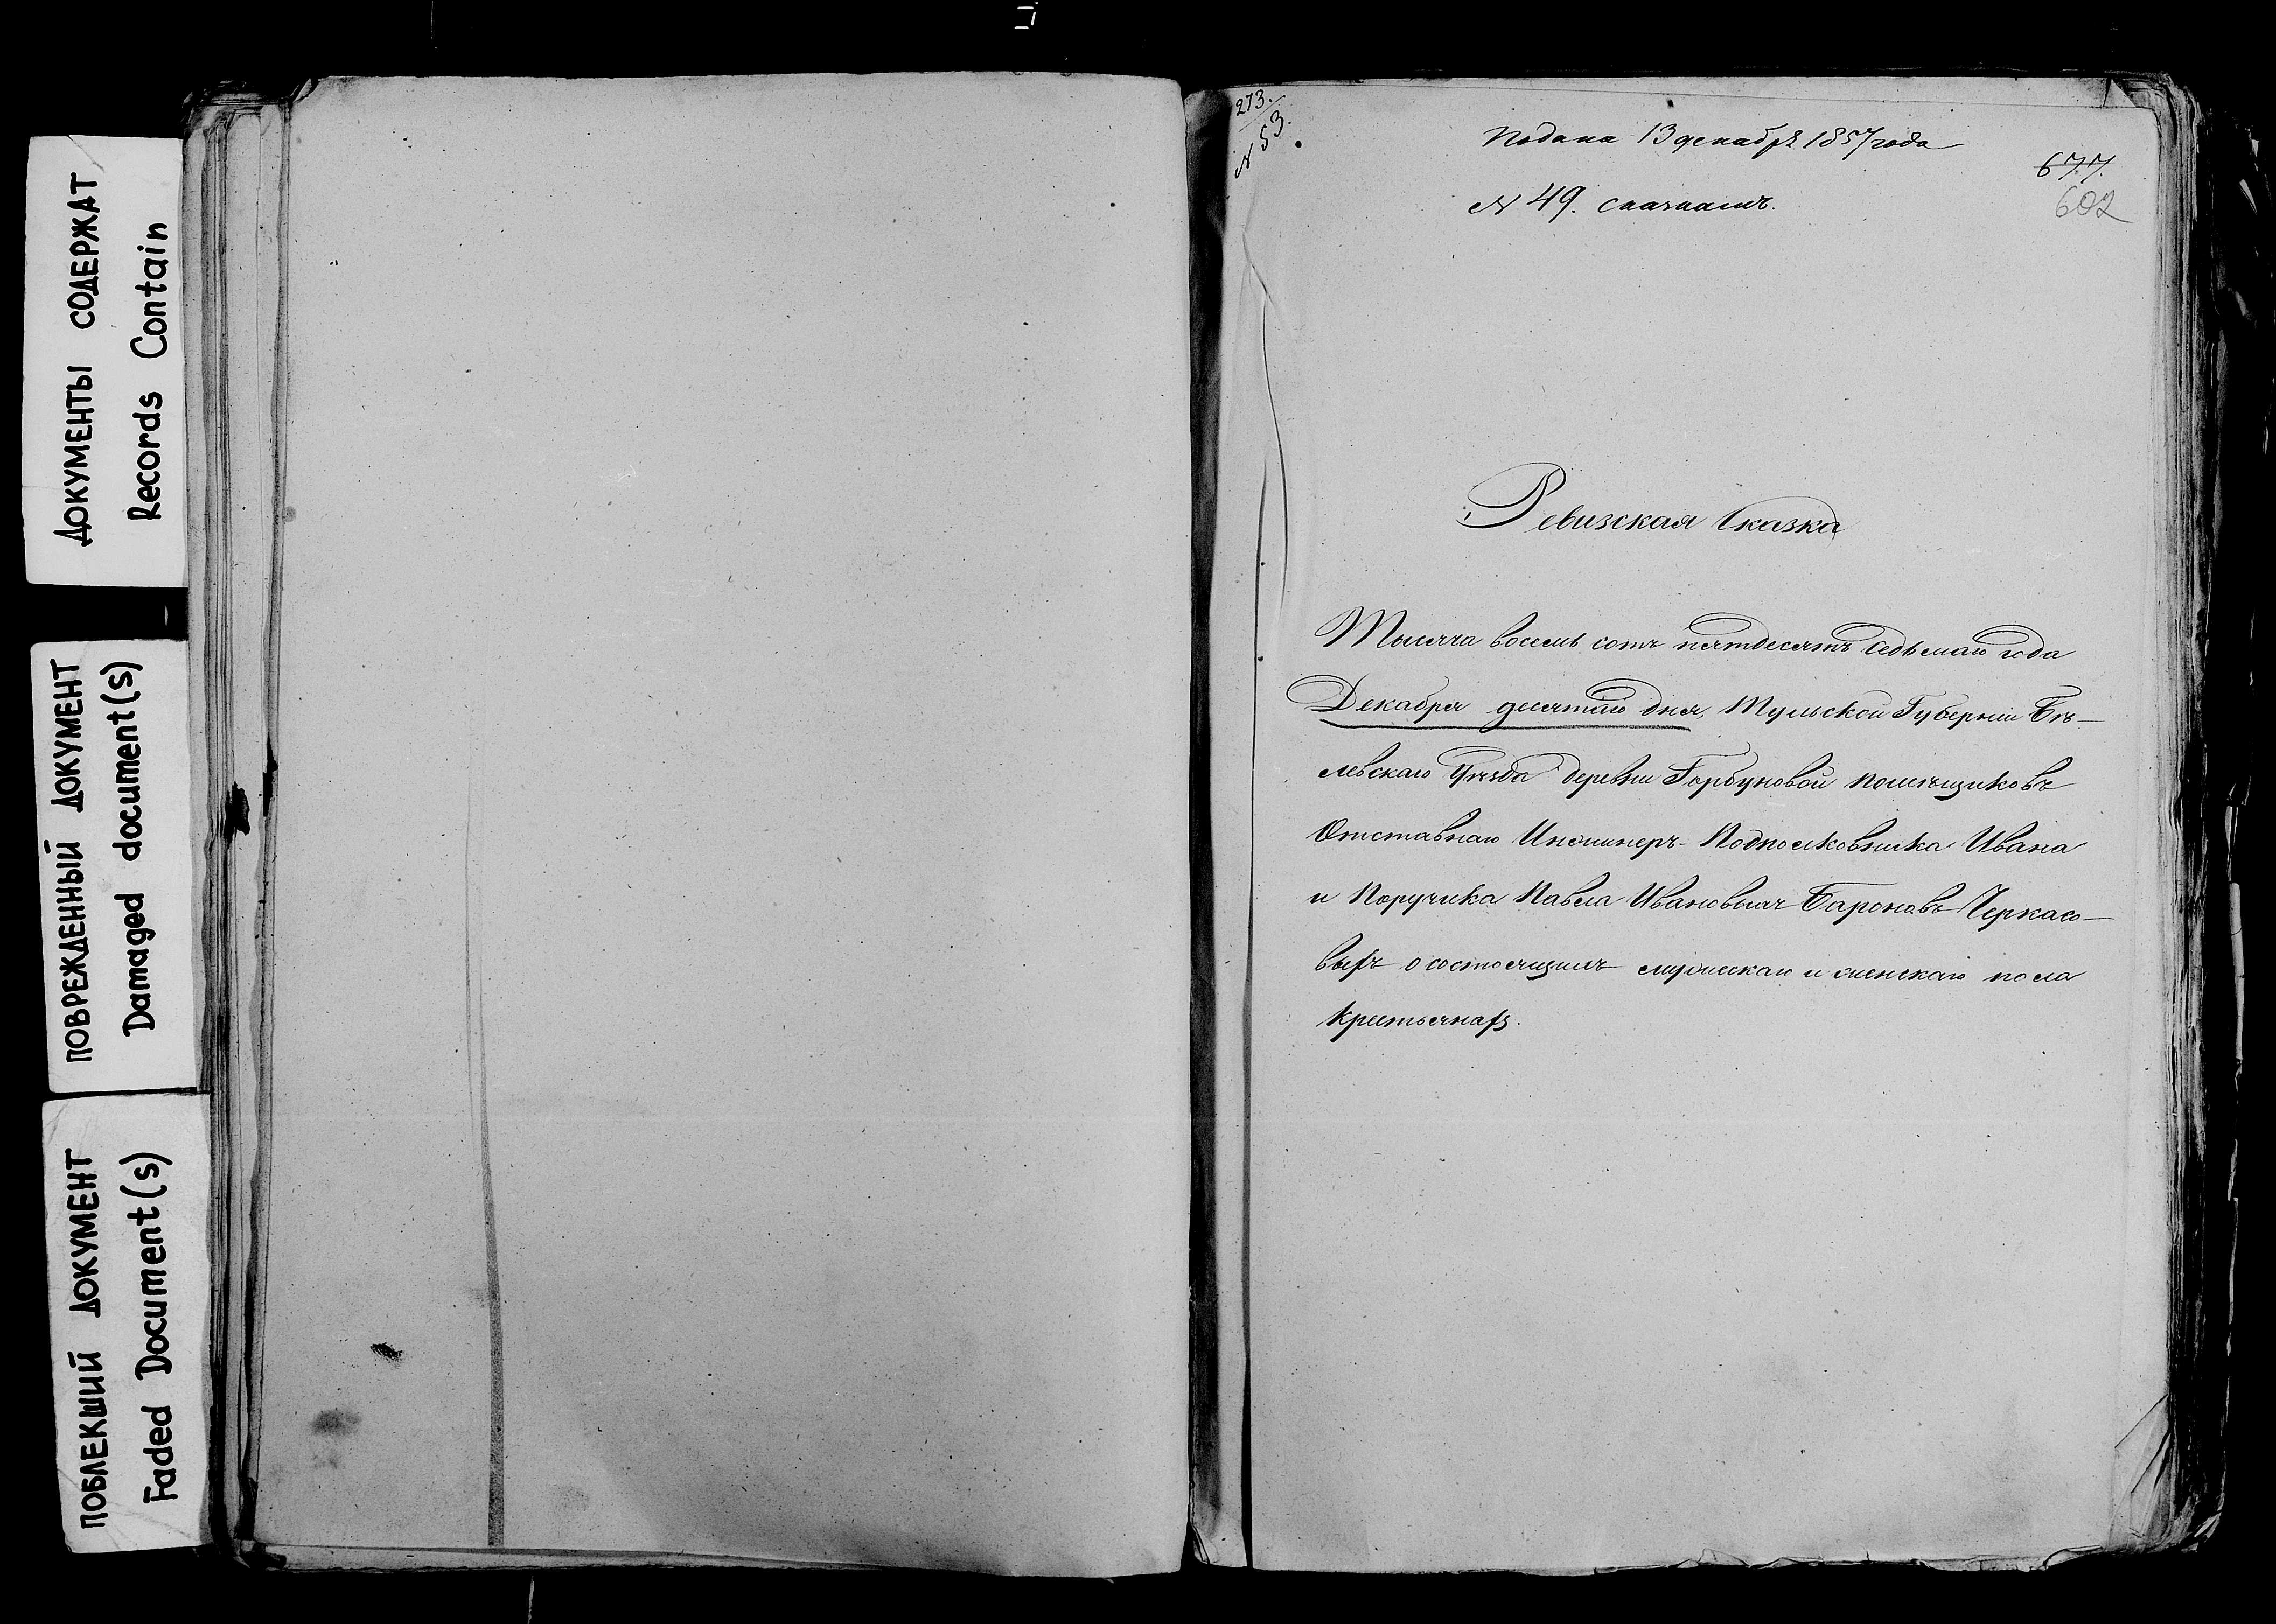 ДОКУМЕНТЫ СОДЕРЖАТ
Records Contain
ПОВРЕЖДЕННЫЙ ДОКУМЕНТ
Damaged document(s)
ПОБЛЕКШИЙ ДОКУМЕНТ
Faded Document(s)
273.
N 53.
Подана 13 декабря 1857 года
N 49.
677.
602
Ревизская Сказка
Тысяча восемь сотъ пятдесятъ седьмаго года
Декабря десятаго дня, Тульской Губерніи Бѣ-
левскаго Уѣзда деревни Горбуновой помѣщиковъ
Отставнаго Инженеръ-Подполковника Ивана
и Поручика Павла Ивановыхъ Бароновъ Черкасо-
выхъ о состоящихъ мужескаго и женскаго пола
крестьянахъ.